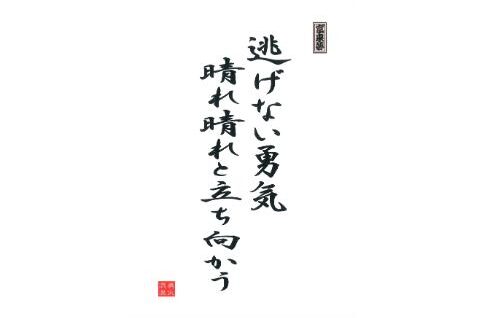 逃げない勇気
晴れ晴れと立ち向かう